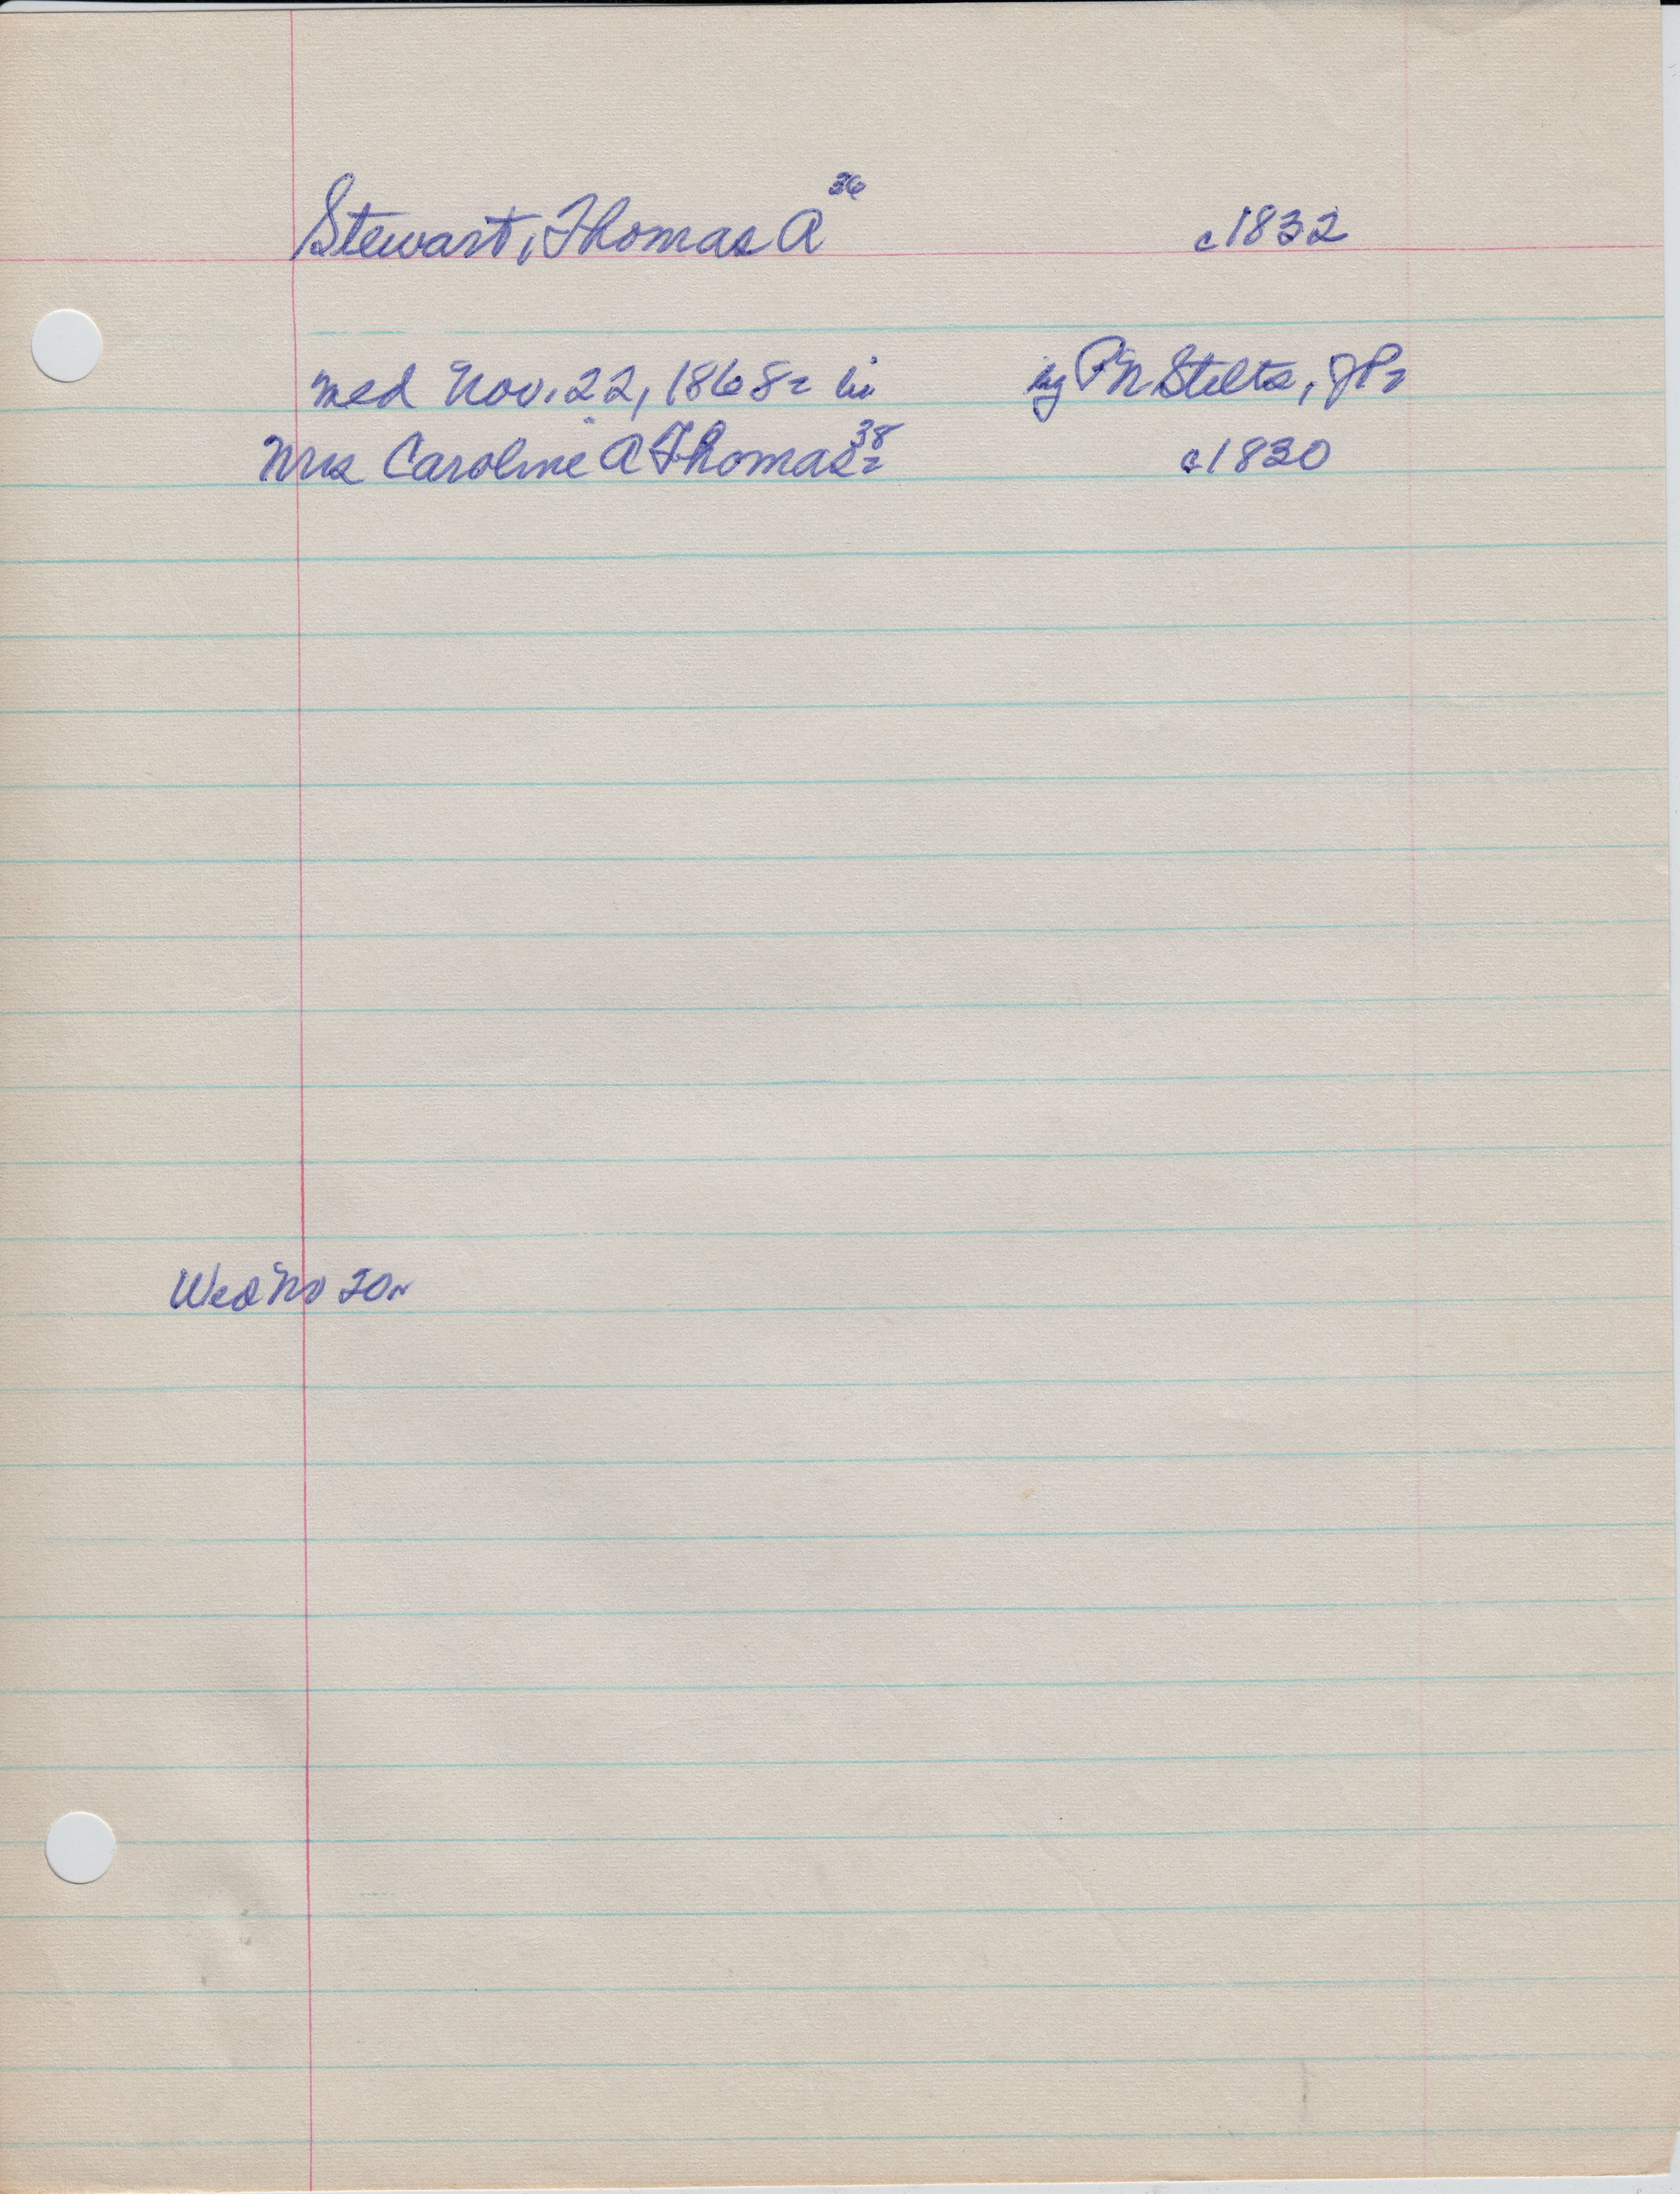 Stewart, Thomas A 36 c1832
med Nov. 22, 1868 by P N Stelts, JP
Mrs Caroline A Thomas 38 c1830
Wed No 20